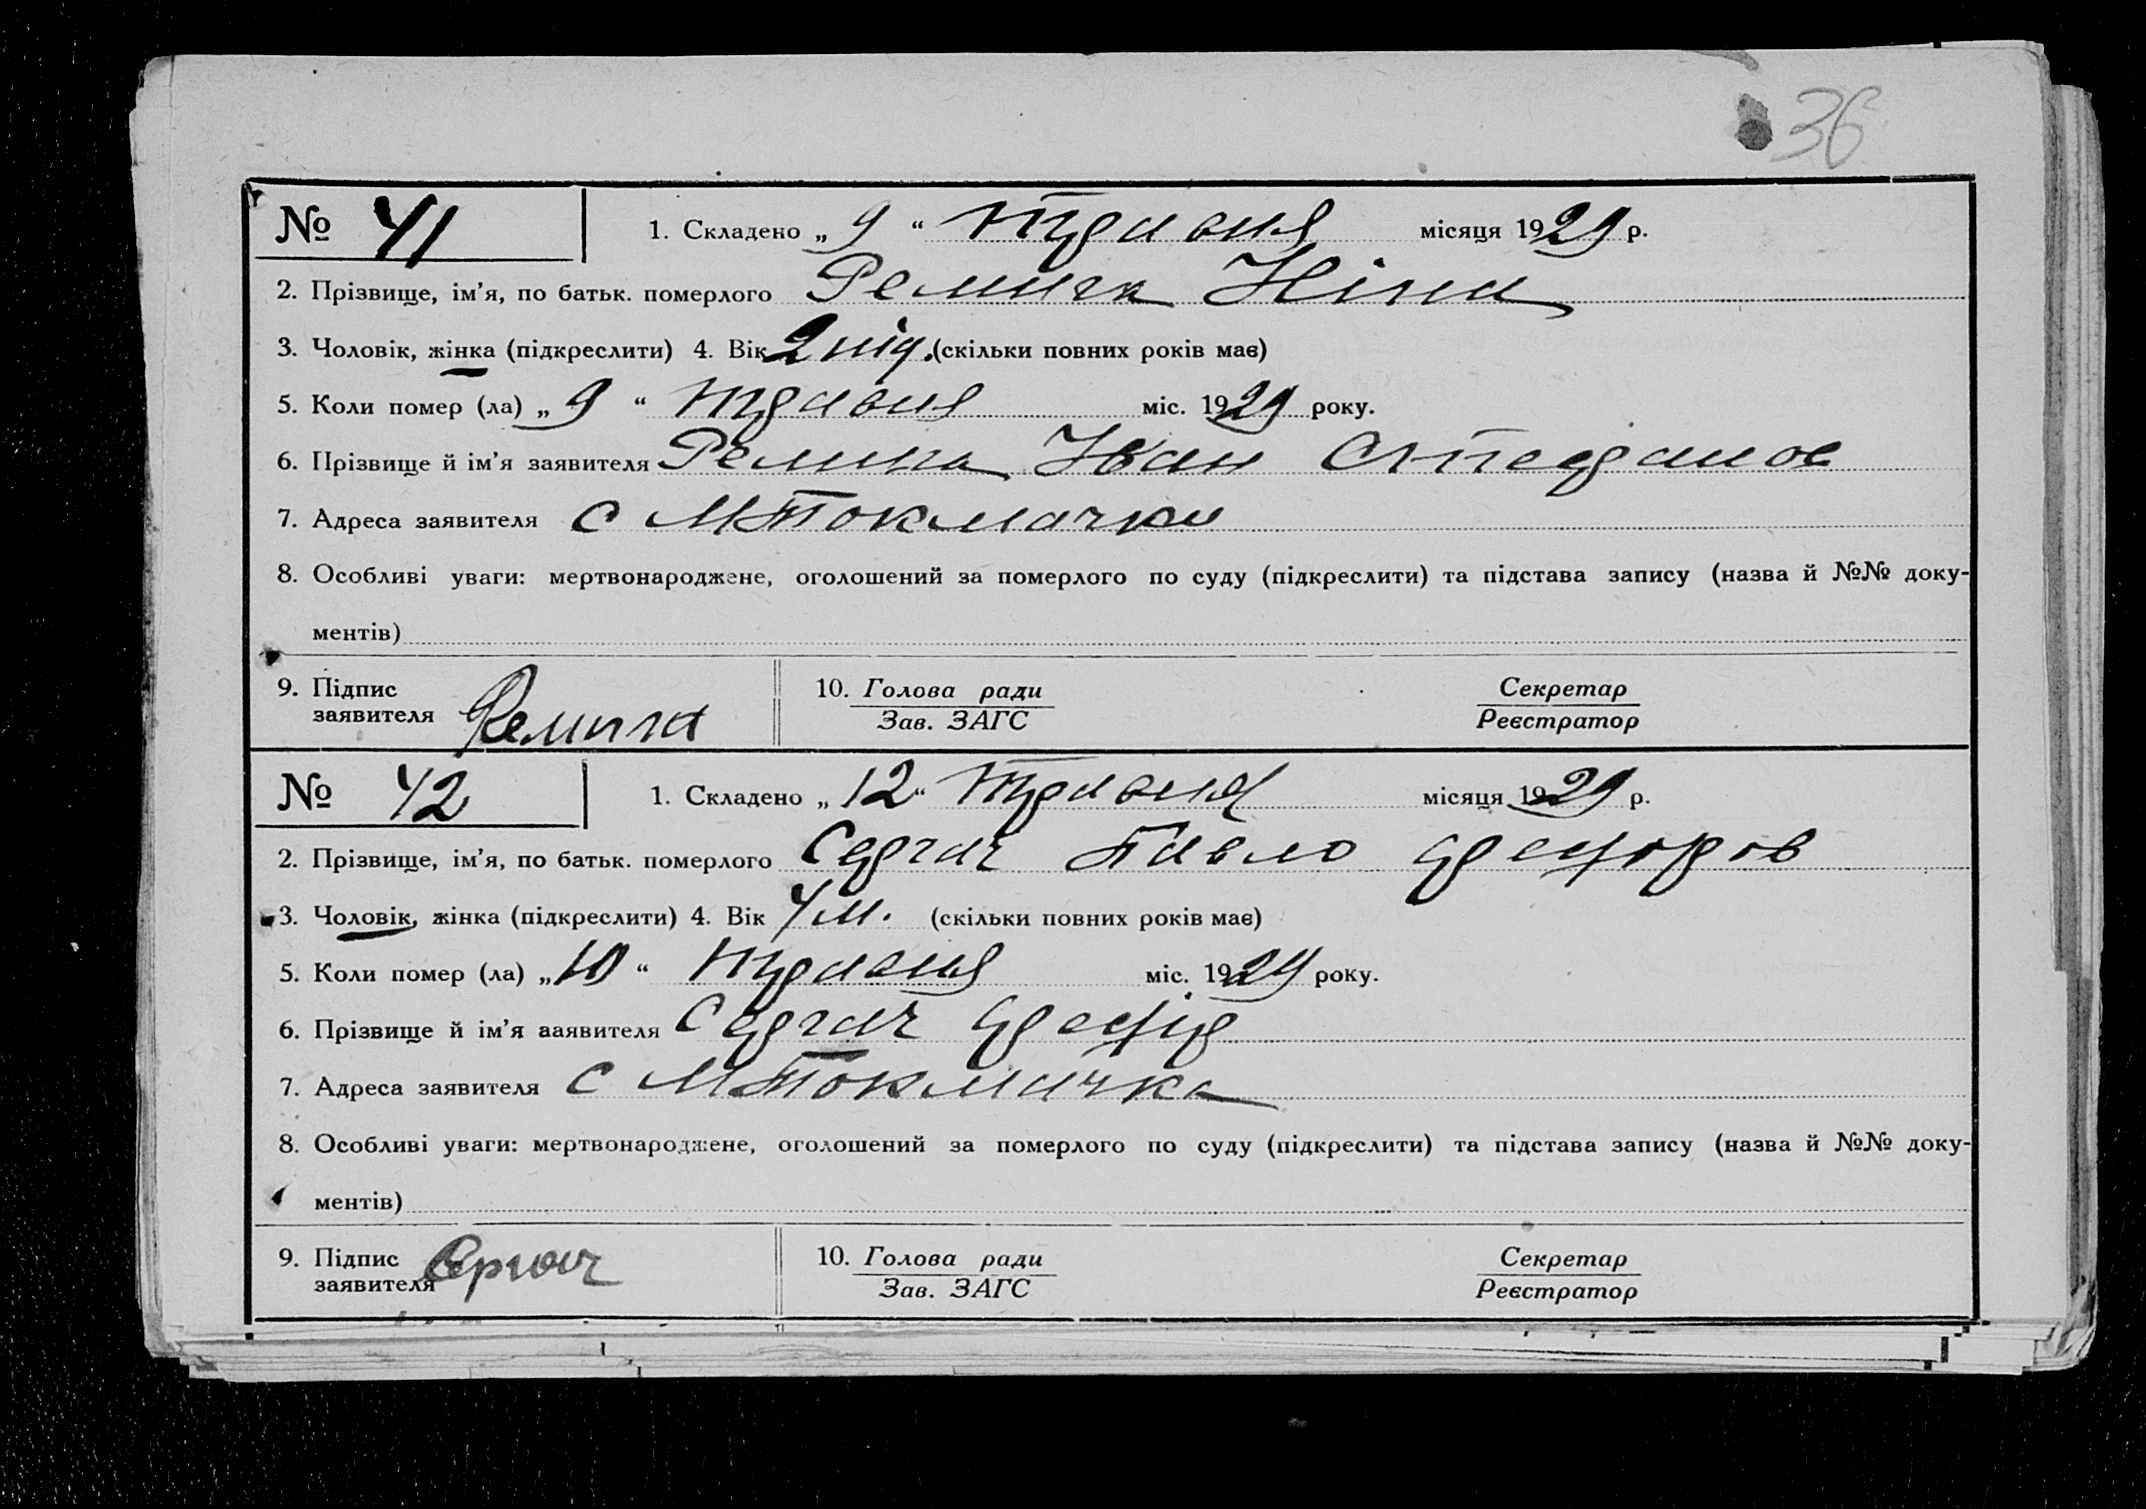 36
№ 41 1. Складено „ 9 “ травня місяця 1929 р.
2. Прізвище, ім’я, по батьк. померлого Ремига Ніна
3. Чоловік, жінка (підкреслити) 4. Вік 2 (скільки повних років має)
5. Коли помер (ла) „ 9 “ травня міс. 1929 року.
6. Прізвище й ім’я заявителя Ремига Іван Степанов
7. Адреса заявителя с МТокмачки
8. Особливі уваги: мертвонароджене, оголошений за померлого по суду (підкреслити) та підстава запису (назва й №№ доку-
ментів)
9. Підпис 10. Голова ради Секретар
заявителя Ремига Зав. ЗАГС Реєстратор
№ 42 1. Складено „ 12 “ травня місяця 1929 р.
2. Прізвище, ім’я, по батьк. померлого Сергач Павло
3. Чоловік, жінка (підкреслити) 4. Вік 4 м. (скільки повних років має)
5. Коли помер (ла) „ 10 “ травня міс. 1929 року.
6. Прізвище й ім’я ааявителя Сергач
7. Адреса заявителя с МТокмачка
8. Особливі уваги: мертвонароджене, оголошений за померлого по суду (підкреслити) та підстава запису (назва й №№ доку-
ментів)
9. Підпис 10. Голова ради Секретар
заявителя Сергач Зав. ЗАГС Реєстратор